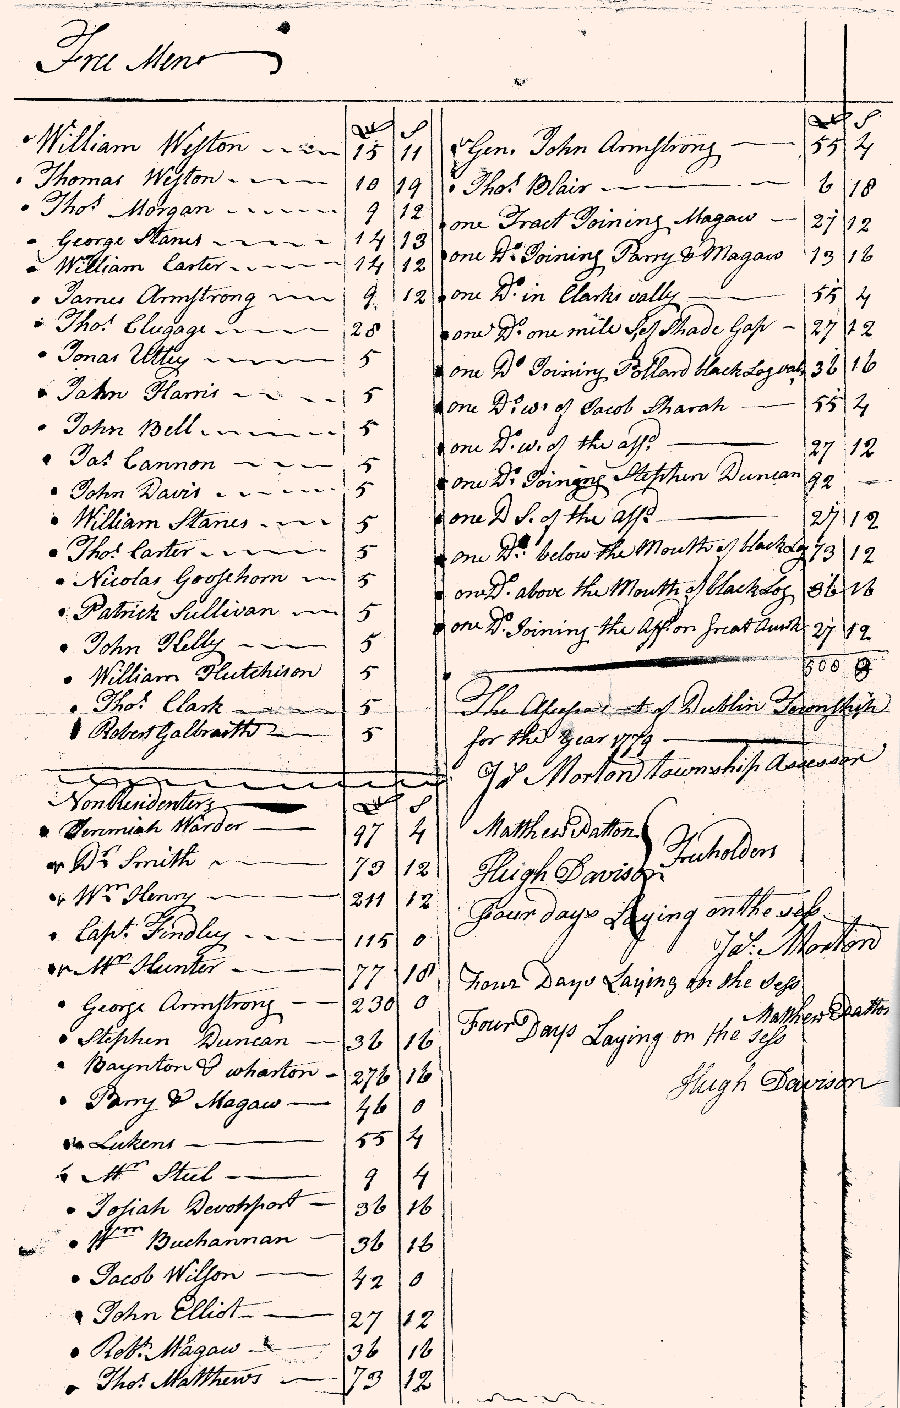 Free Men
£ S
William Weston 15 11
Thomas Weston 10 19
Thos. Morgan 9 12
George Stanes 14 13
William Carter 14 12
James Armstrong 9 12
Thos. Clugage 28
Jonas Utley 5
John Harris 5
John Bell 5
Jas. Cannon 5
John Davis 5
William Stanes 5
Thos. Carter 5
Nicolas Goosehorn 5
Patrick Sullivan 5
John Kelly 5
William Hutchison 5
Thos. Clark 5
Robert Galbraith 5
Non Residenters £ S
Jeremiah Warder 97 4
Dr. Smith 73 12
Wm Henry 211 12
Capt. Findley 115 0
Mr Hunter 77 18
George Armstrong 230 0
Stephen Duncan 36 16
Baynton & wharton 276 16
Parry & Magaw 46 0
Lukens 55 4
Mr Steel 9 4
Josiah Devonsport 36 16
Wm Buchannan 36 16
Jacob Wilson 42 0
John Elliot 27 12
Robt. Magaw 36 16
Thos. Matthews 73 12
£ S
Gen. John Armstrong 55 4
Thos. Blair 6 18
one Tract Joining Magaw 27 12
one Do. Joining Parry & Magaw 13 16
one Do. in Clarks vally 55 4
one Do. one mile S. of Shade Gap 27 12
one Do Joining Pollard black Log valy 36 16
one Do. w. of Jacob Sharah 55 4
one Do. w. of the affd. 27 12
one Do. Joining Stephen Duncan 92 —
one D S. of the affd. 27 12
one Do. below the Mouth of black Log 73 12
one Do. above the Mouth of black Log 36 16
one Do. Joining the Aff. on Great Auwk 27 12
500 8
The Assessment of Dublin Township
for the Year 1779
Jas Morton township Assessor
Matthew Patton
Hugh Davison } Freeholders
Four days Laying on the sess
Jas. Morton
Four Days Laying on the sess
Matthew Patton
Four Days Laying on the sess
Hugh Davison